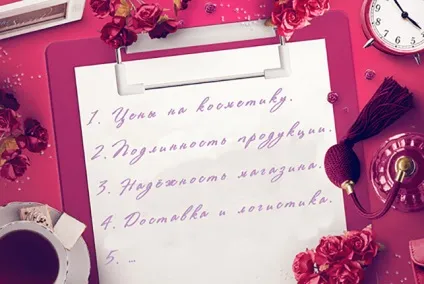 1. Цены на косметику.
2. Подлинность продукции.
3. Надёжность магазина.
4. Доставка и логистика.
5. ...